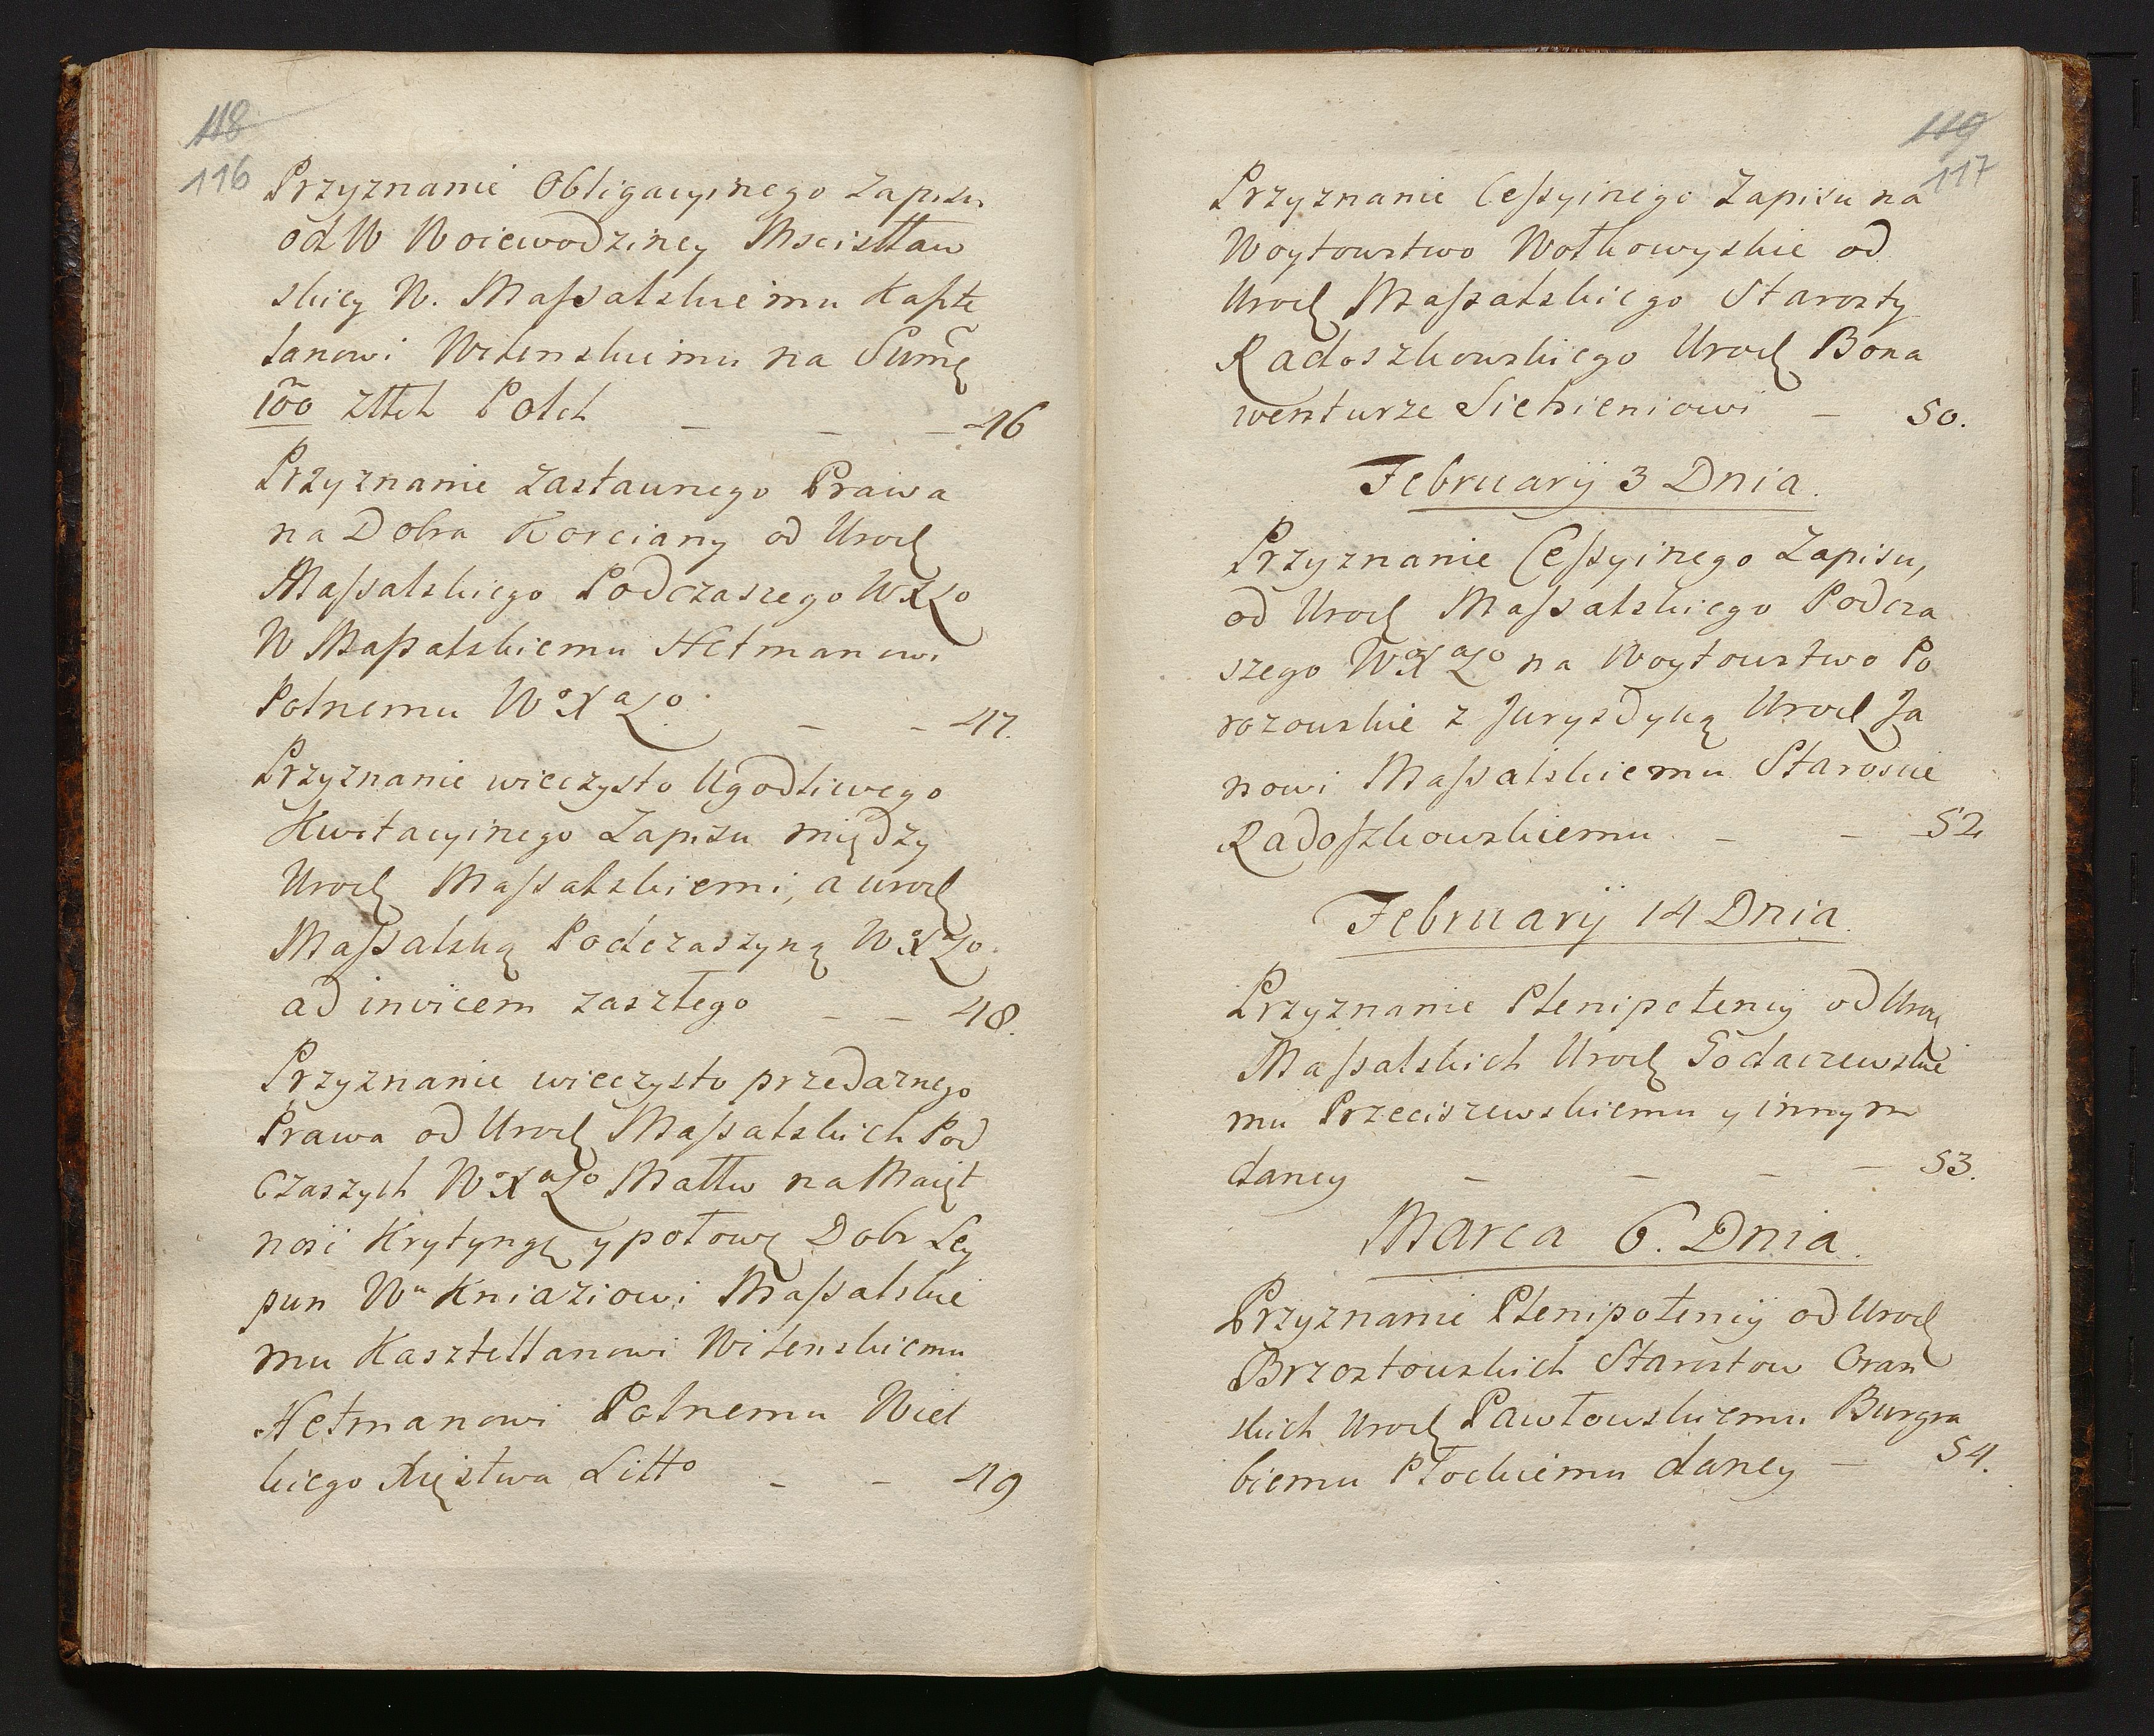 118
116
Przyznanie Obligacyinego Zapisu
od W Woiewodziney Mscisłław
skiey W. Massalskiemu Kaszte
lanowi Wilenskiemu na Summę
100 złłch Polch — — — 46
Przyznanie Zastawnego Prawa
na Dobra Korciany od Urodz
Massalskiego Podczaszego WXLo
W Massalskiemu Hetmanowi
Polnemu Wo Xa Lo — — 47.
Przyznanie wieczysto Ugodliwego
Kwitacyinego Zapisu między
Urodz Massalskiemi, a urodz
Massalską Podczaszyną Wo Xa Lo
ad invicem zaszłego — — 48.
Przyznanie wieczysto przedażnego
Prawa od Urodz Massalskich Pod
czaszych Wo Xa Lo Małłw na Maięt
ność Krytyngę y połowę Dobr Ley
pun Wu Kniaziowi Massalskie
mu Kasztellanowi Wilenskiemu
Hetmanowi Polnemu Wiel
kiego Xięstwa Litto — — 49
119
117
Przyznanie Cessyinego Zapisu na
Woytowstwo Wołkowyskie od
Urodz Massalskiego Starosty
Radoszkowskiego Urodz Bona
wenturze Siehieniowi — 50.
February 3 Dnia.
Przyznanie Cessyinego Zapisu,
od Urodz Massalskiego Podcza
szego Wo Xa Lo na Woytowstwo Po
rozowskie z Jurysdyką Urodz Ja
nowi Massalskiemu Staroscie
Radoszkowskiemu — — 52
February 14 Dnia.
Przyznanie Plenipotencij od Urodz
Massalskich Urodz Godaczewskie
mu Przeciszewskiemu y innym
daney — — — — 53.
Marca 6. Dnia.
Przyznanie Plenipotencij od Urodz
Brzostowskich Starostow Oran
skich Urodz Pawłowskiemu Burgra
biemu Płockiemu daney — 54.